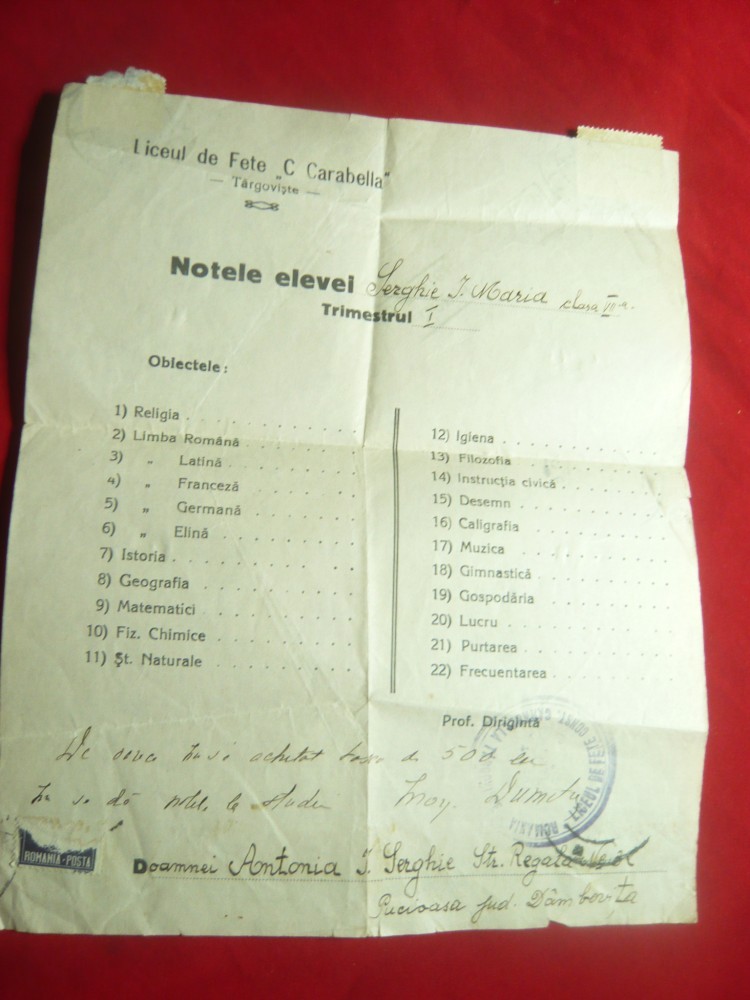 Liceul de Fete „C Carabella"
— Târgoviște —
Notele elevei Serghie I. Maria clasa
Trimestrul I
Obiectele:
1) Religia
2) Limba Română
3) „ Latină
4) „ Franceză
5) „ Germană
6) „ Elină
7) Istoria
8) Geografia
9) Matematici
10) Fiz. Chimice
11) Șt. Naturale
12) Igiena
13) Filozofia
14) Instrucția civică
15) Desemn
16) Caligrafia
17) Muzica
18) Gimnastică
19) Gospodăria
20) Lucru
21) Purtarea
22) Frecuentarea
Prof. Dirigintă
achitat taxa de 500 lei
nu se dă
ROMANIA
ROMANIA-POSTA
Doamnei Antonia I. Serghie Str. Regală
Pucioasa jud. Dâmbovița